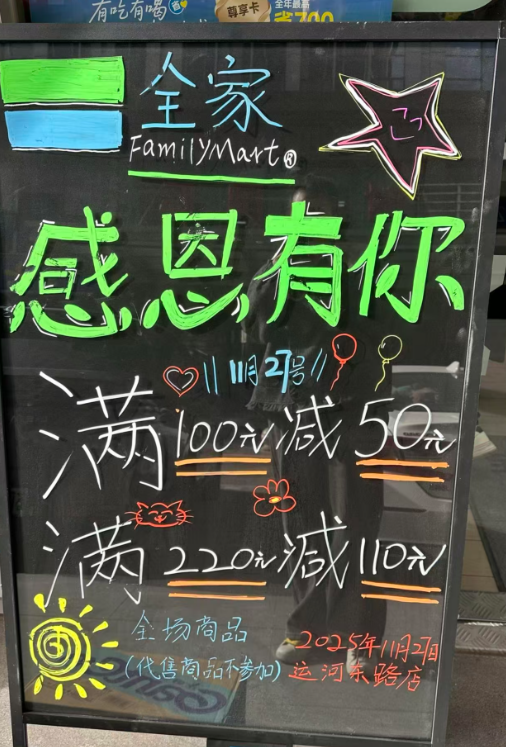 有吃有喝
尊享卡
全年最高
省700
全家
FamilyMart®
感恩有你
11月27号
满100元减50元
满220元减110元
全场商品
(代售商品不参加)
2025年11月27日
运河东路店